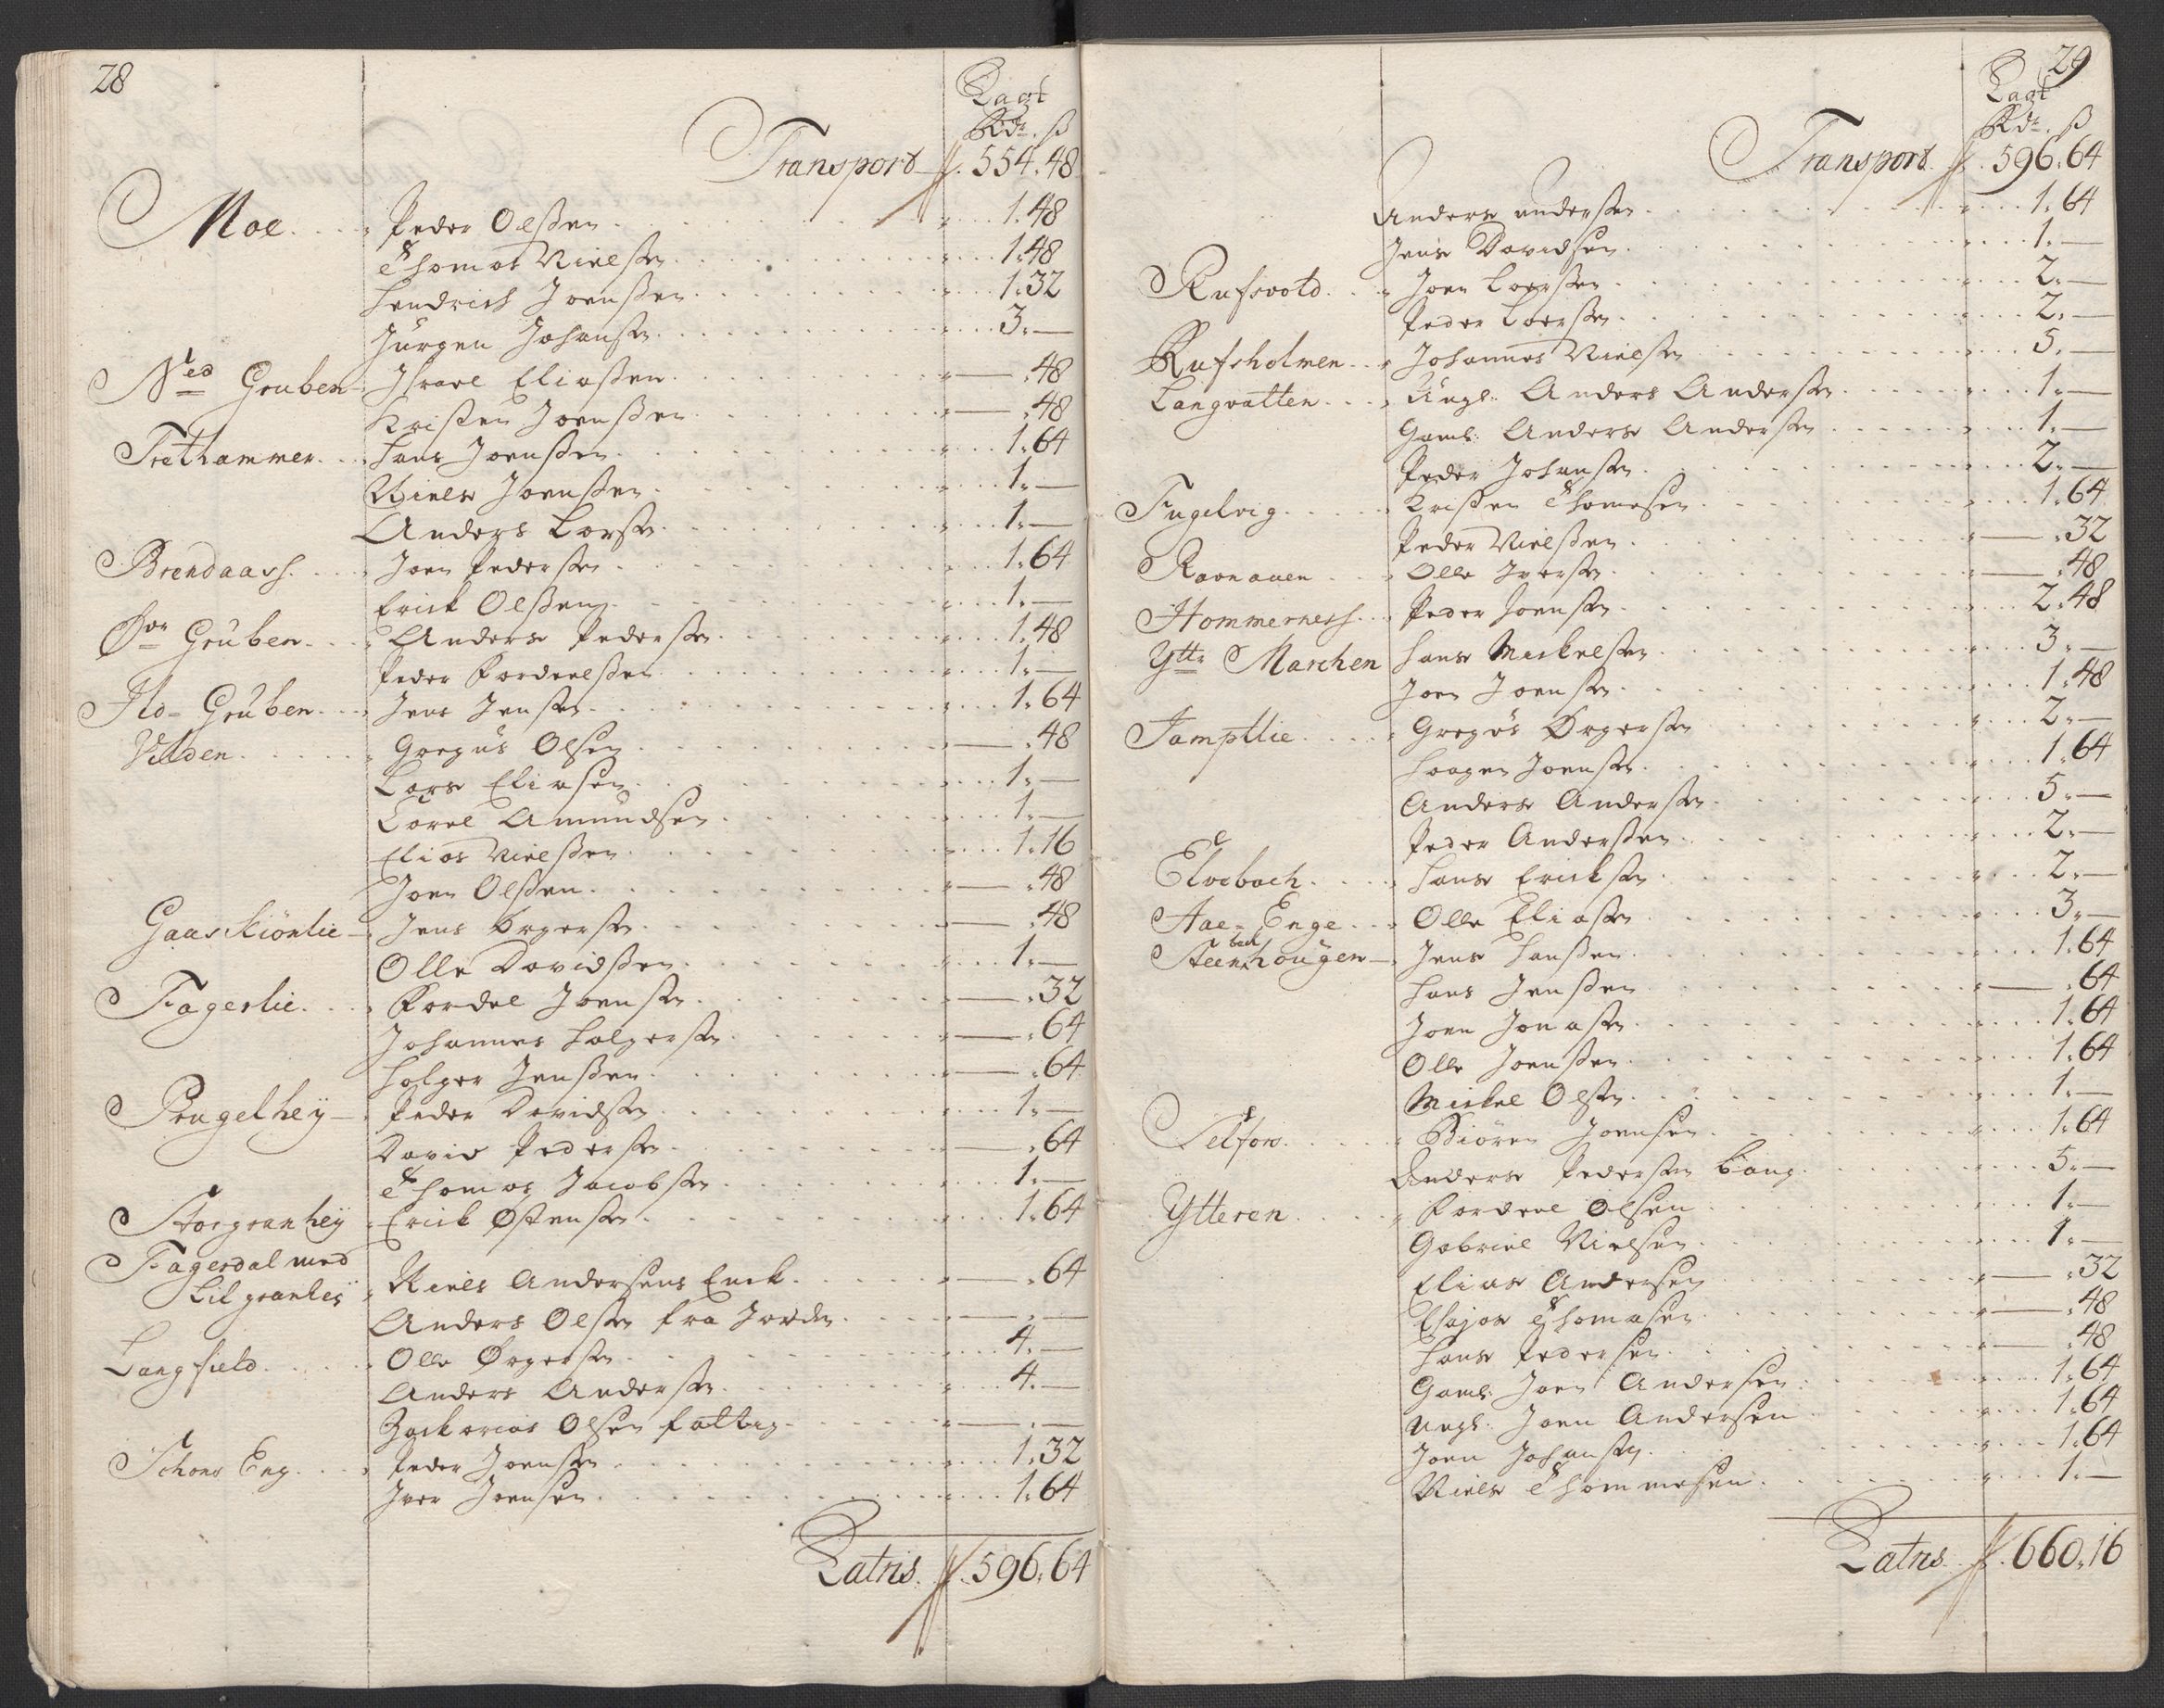 28
Lagt
Rdr. ß
Transport 554.48
Moe. Peder Olßen 1.48
Thomas Nielßen 1.48
Hendrich Joenßen 1.32
Jürgen Johanßen 3.—
Ned Gruben Israel Eliaßen —.48
Kristen Joenßen —.48
Trethammer. Hans Joenßen 1.64
Niels Joenßen 1.—
Anders Larßen 1.—
Brendaass. Joen Pederßen 1.64
Erick Olßen 1.—
Øvr Gruben. Anders Pederßen 1.48
Peder Fordeelßen 1.—
Ild-Gruben. Jens Jenßen 1.64
Vilden. Gregus Olsen —.48
Lars Eliasen 1.—
Carel Amundsen 1.—
Elias Nielßen 1.16
Joen Olßen —.48
Gaaskiönlie Jens Ørgerßen —.48
Olle Davidßen 1.—
Fagerlie. Fordel Joenßen —.32
Johannes Holgerßen —.64
Holger Jenßen —.64
Prugelheÿ Peder Davidßen 1.—
David Pederßen —.64
Thomas Jacobßen 1.—
Storgranheÿ Erick Østenßen 1.64
Fagerdal med
Lilgranheÿ Niels Andersens Enck. —.64
Anders Olßen fra Jorden —.—
Langfield. Olle Ørgerßen 4.—
Anders Anderßen 4.—
Zackarias Olsen fattig —.—
Schons Eng. Peder Joenßen 1.32
Iver Joensen 1.64
Latris. 596.64
29
Lagt
Rdr. ß
Transport 596.64
Anders anderßen 1.64
Jens Davidsen 1.—
Rufsvold. Joen Larßen 2.—
Peder Larßen 2.—
Rufsholmen. Johannes Nielßen 5.—
Langvatten. Ungl: Anders Anderßen 1.—
Gaml: Anders Anderßen 1.—
Peder Johanßen 2.—
Fugelvig. Kristen Thomesen 1.64
Peder Nielßen —.32
Ravnauen Olle Iverßen —.48
Hommerness. Peder Joenßen 2.48
Yttr Marchen Hans Mickelßen 3.—
Joen Joenßen 1.48
Jamptlie Gregus Ørgerßen 2.—
Haagen Joenßen 1.64
Anders Anderßen 5.—
Peder Anderßen 2.—
Elvebach. Hans Erickßen 2.—
Aae-Enge Olle Eliaßen 3.—
Steen bech hougen Jens Hanßen 1.64
Hans Jenßen —.64
Joen Jonaßen 1.64
Olle Joenßen 1.64
Mickel Olßen 1.—
Selfors. Biören Joensen 1.64
Anders Pederßen Bang 5.—
Ytteren. Fordeel Olsen 1.—
Gabriel Nielsen 1.—
Elias Andersen —.32
Esajas Thomasen —.48
Hans Pedersen —.48
Gaml: Joen Andersen 1.64
Ungl: Joen Andersen 1.64
Joen Johanßen 1.64
Niels Thommesen 1.—
Latris. 660.16